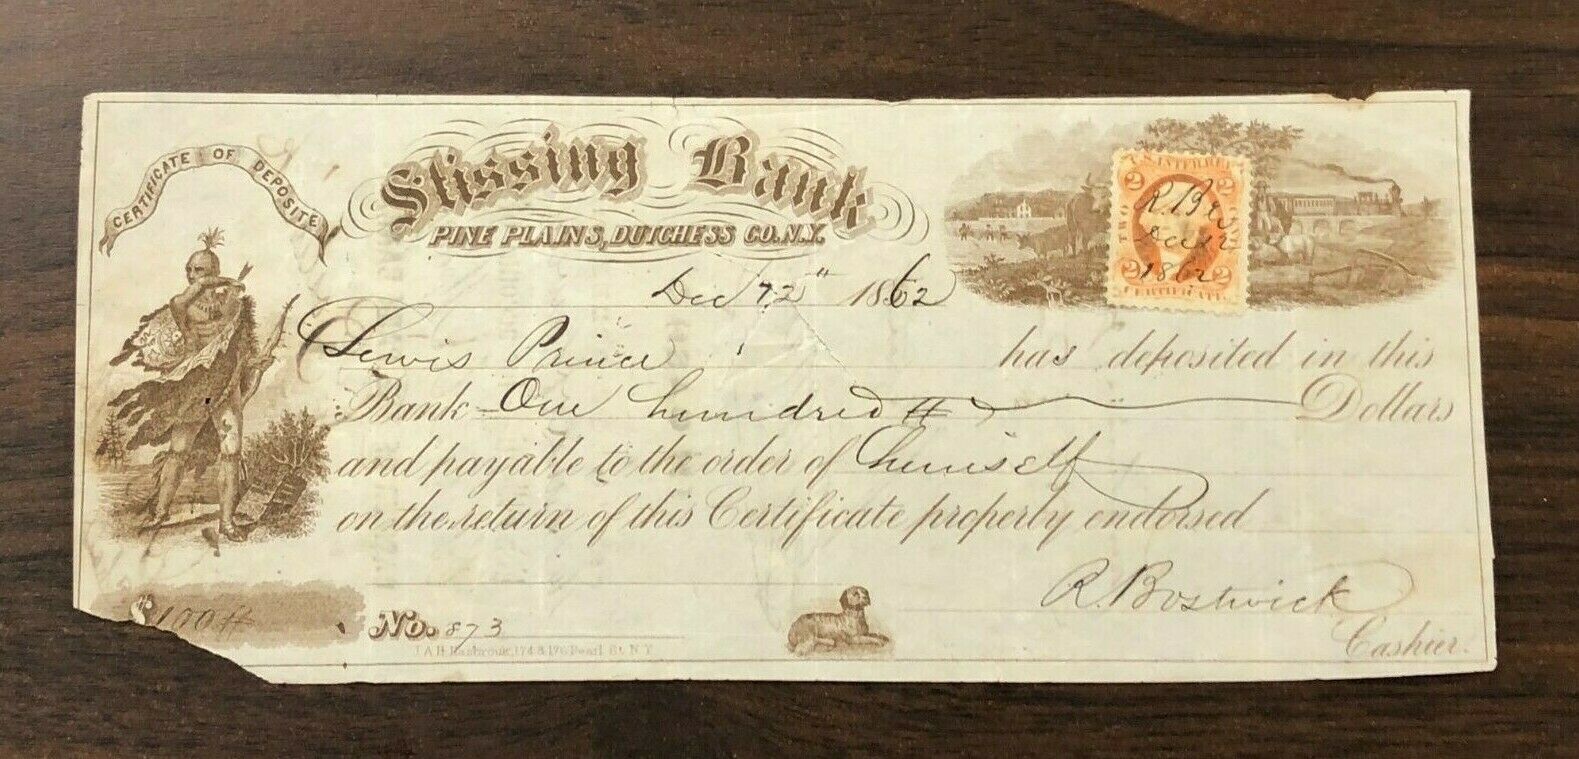 CERTIFICATE OF DEPOSITE
Stissing Bank
PINE PLAINS, DUTCHESS CO. N.Y.
Dec 12" 1862
U.S. INTER. REV.
2 2
TWO
R. B
Dec 12
1862
2 2
CERTIFICATE.
Lewis Prince has deposited in this
Bank One hundred Dollars
and payable to the order of himself
on the return of this Certificate properly endorsed
R. Bostwick
$100 No. 873 Cashier.
J.A.H. Hasbrouck, 174 & 176 Pearl St. N.Y.